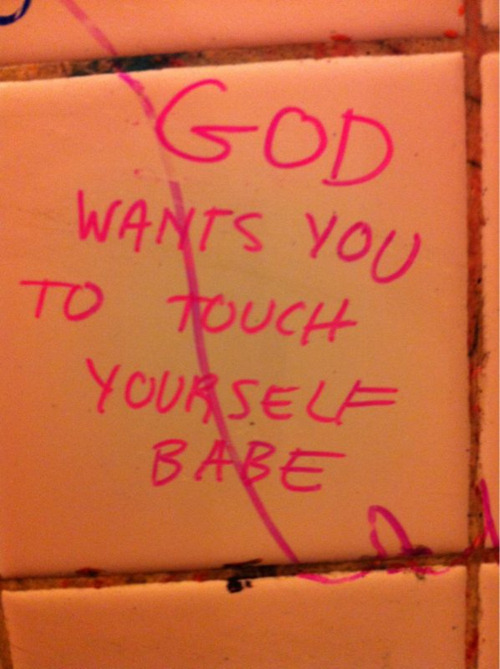 GOD
WANTS YOU
TO TOUCH
YOURSELF
BABE